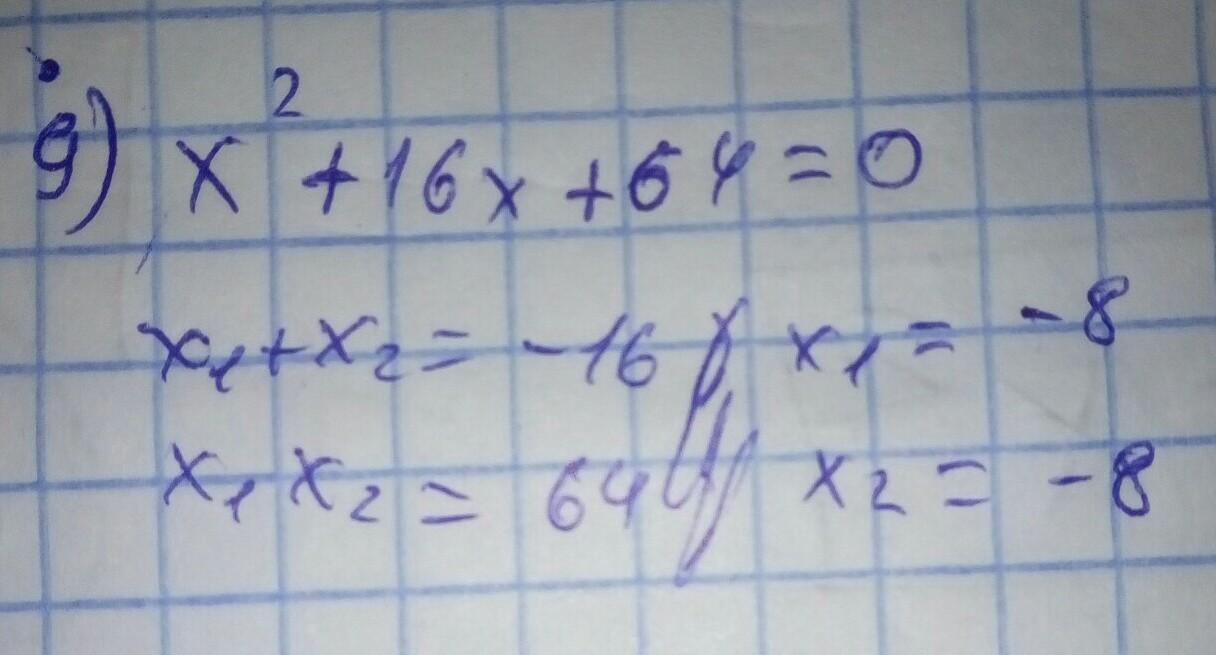 g) x² + 16x + 64 = 0
x₁ + x₂ = -16 x₁ = -8
x₁ x₂ = 64 x₂ = -8